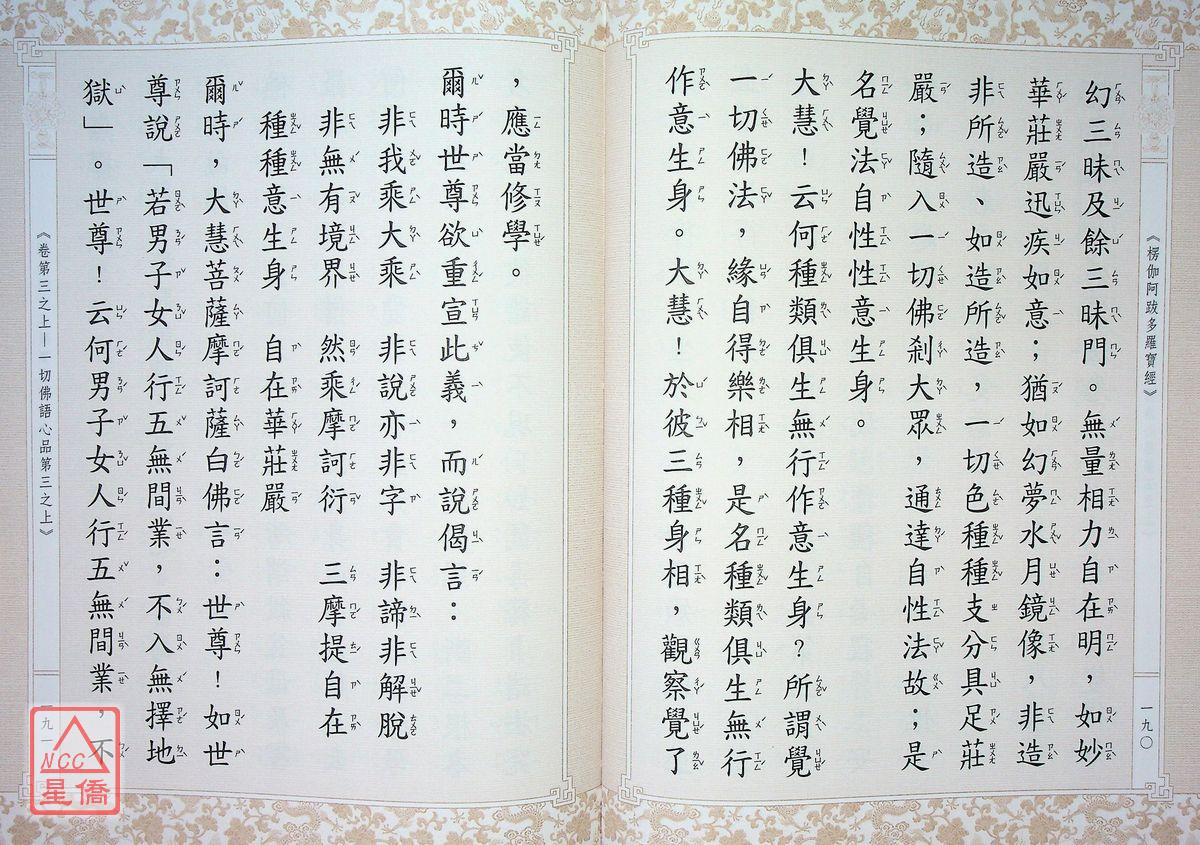 《楞伽阿跋多羅寶經》
一九〇
幻三昧及餘三昧門。無量相力自在明，如妙
華莊嚴迅疾如意；猶如幻夢水月鏡像，非造
非所造、如造所造，一切色種種支分具足莊
嚴；隨入一切佛剎大眾，通達自性法故；是
名覺法自性性意生身。
大慧！云何種類俱生無行作意生身？所謂覺
一切佛法，緣自得樂相，是名種類俱生無行
作意生身。大慧！於彼三種身相，觀察覺了
，應當修學。
爾時世尊欲重宣此義，而說偈言：
非我乘大乘　非說亦非字　非諦非解脫
非無有境界　然乘摩訶衍　三摩提自在
種種意生身　自在華莊嚴
爾時，大慧菩薩摩訶薩白佛言：世尊！如世
尊說「若男子女人行五無間業，不入無擇地
獄」。世尊！云何男子女人行五無間業，不
《卷第三之上—一切佛語心品第三之上》
一九一
NCC
星僑